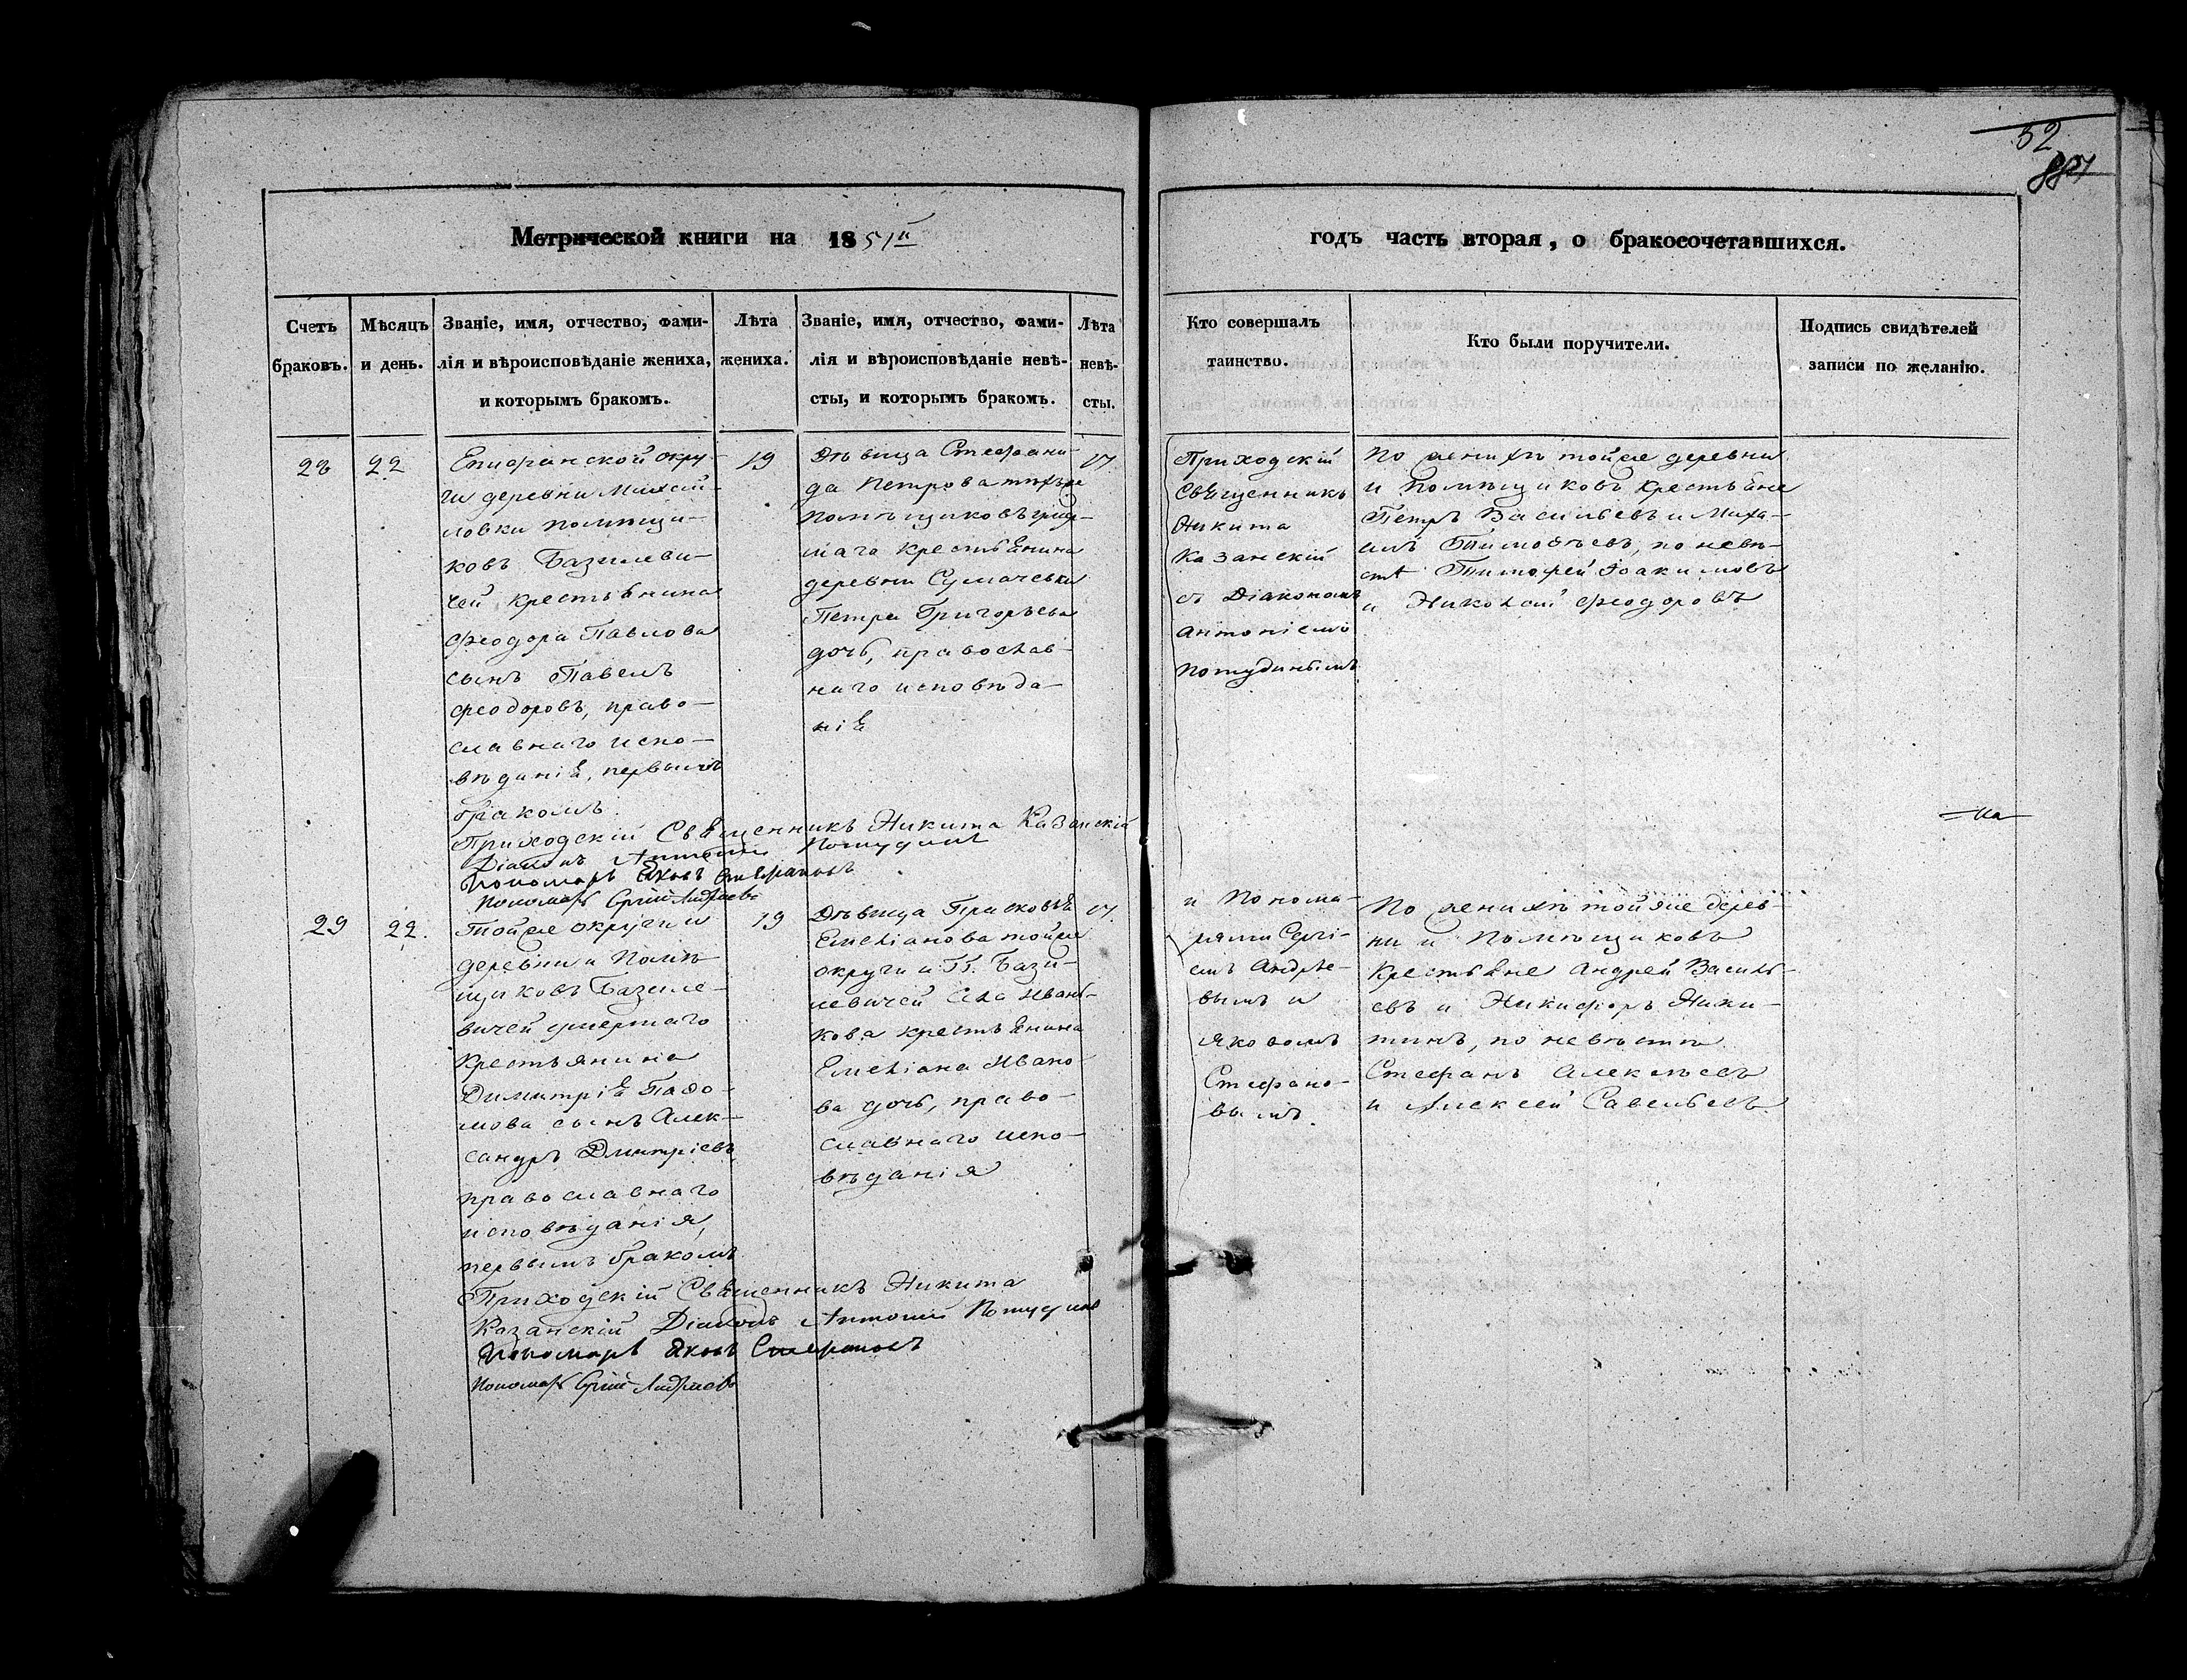 52
Метрической книги на 1851й
годъ часть вторая, о бракосочетавшихся.
Счетъ
браковъ.
Мѣсяцъ
и день.
Званіе, имя, отчество, фами-
лія и вѣроисповѣданіе жениха,
и которымъ бракомъ.
Лѣта
жениха.
Званіе, имя, отчество, фами-
лія и вѣроисповѣданіе невѣ-
сты, и которымъ бракомъ.
Лѣта
невѣ-
сты.
Кто совершалъ
таинство.
Кто были поручители.
Подпись свидѣтелей
записи по желанію.
28
22
Епифанской окру-
ги деревни Михай-
ловки помѣщи-
ковъ Базилеви-
чей крестьянина
Феодора Павлова
сынъ Павелъ
Феодоровъ, право-
славнаго испо-
вѣданія, первымъ
бракомъ
19
Дѣвица Стефани-
да Петрова тѣхъже
помѣщиковъ умер-
шаго крестьянина
деревни Сумачевки
Петра Григорьева
дочь, православ-
наго исповѣда-
нія
17
Приходскій
Священникъ
Никита
Казанскій
съ Діакономъ
Антоніемъ
Потудинымъ
По женихѣ тойже деревни
и помѣщиковъ крестьяне
Петръ Васильевъ и Миха-
илъ Тимофѣевъ, по невѣ-
стѣ Тимофей Іоакимовъ
и Николай Феодоровъ
Приходскій Священникъ Никита Казанскій
Діаконъ Антоній Потудинъ
Пономарь Яковъ Стефановъ
Пономарь Сергій Андреевъ
29
22.
Тойже округи и
деревни и помѣ-
щиковъ Базиле-
вичей умершаго
крестьянина
Димитрія
мова сынъ Алек-
сандръ Дмитріевъ,
православнаго
исповѣданія,
первымъ бракомъ
19
Дѣвица Прасковья
Емеліанова тойже
округи и Гг. Бази-
левичей сла Ивань-
кова крестьянина
Емеліана Ивано-
ва дочь, право-
славнаго испо-
вѣданія
17.
и Понома-
рями Сергі-
емъ Андрѣе-
вымъ и
Яковомъ
Стефано-
вымъ.
По женихѣ тойже дерев-
ни и помѣщиковъ
крестьяне Андрей Василь-
евъ и Никифоръ Ники-
тинъ, по невѣстѣ
Стефанъ Алексѣевъ
и Алексей Савельевъ
Приходскій Священникъ Никита
Казанскій Діаконъ Антоній Потудинъ
Пономарь Яковъ Стефановъ
Пономарь Сергій Андреевъ